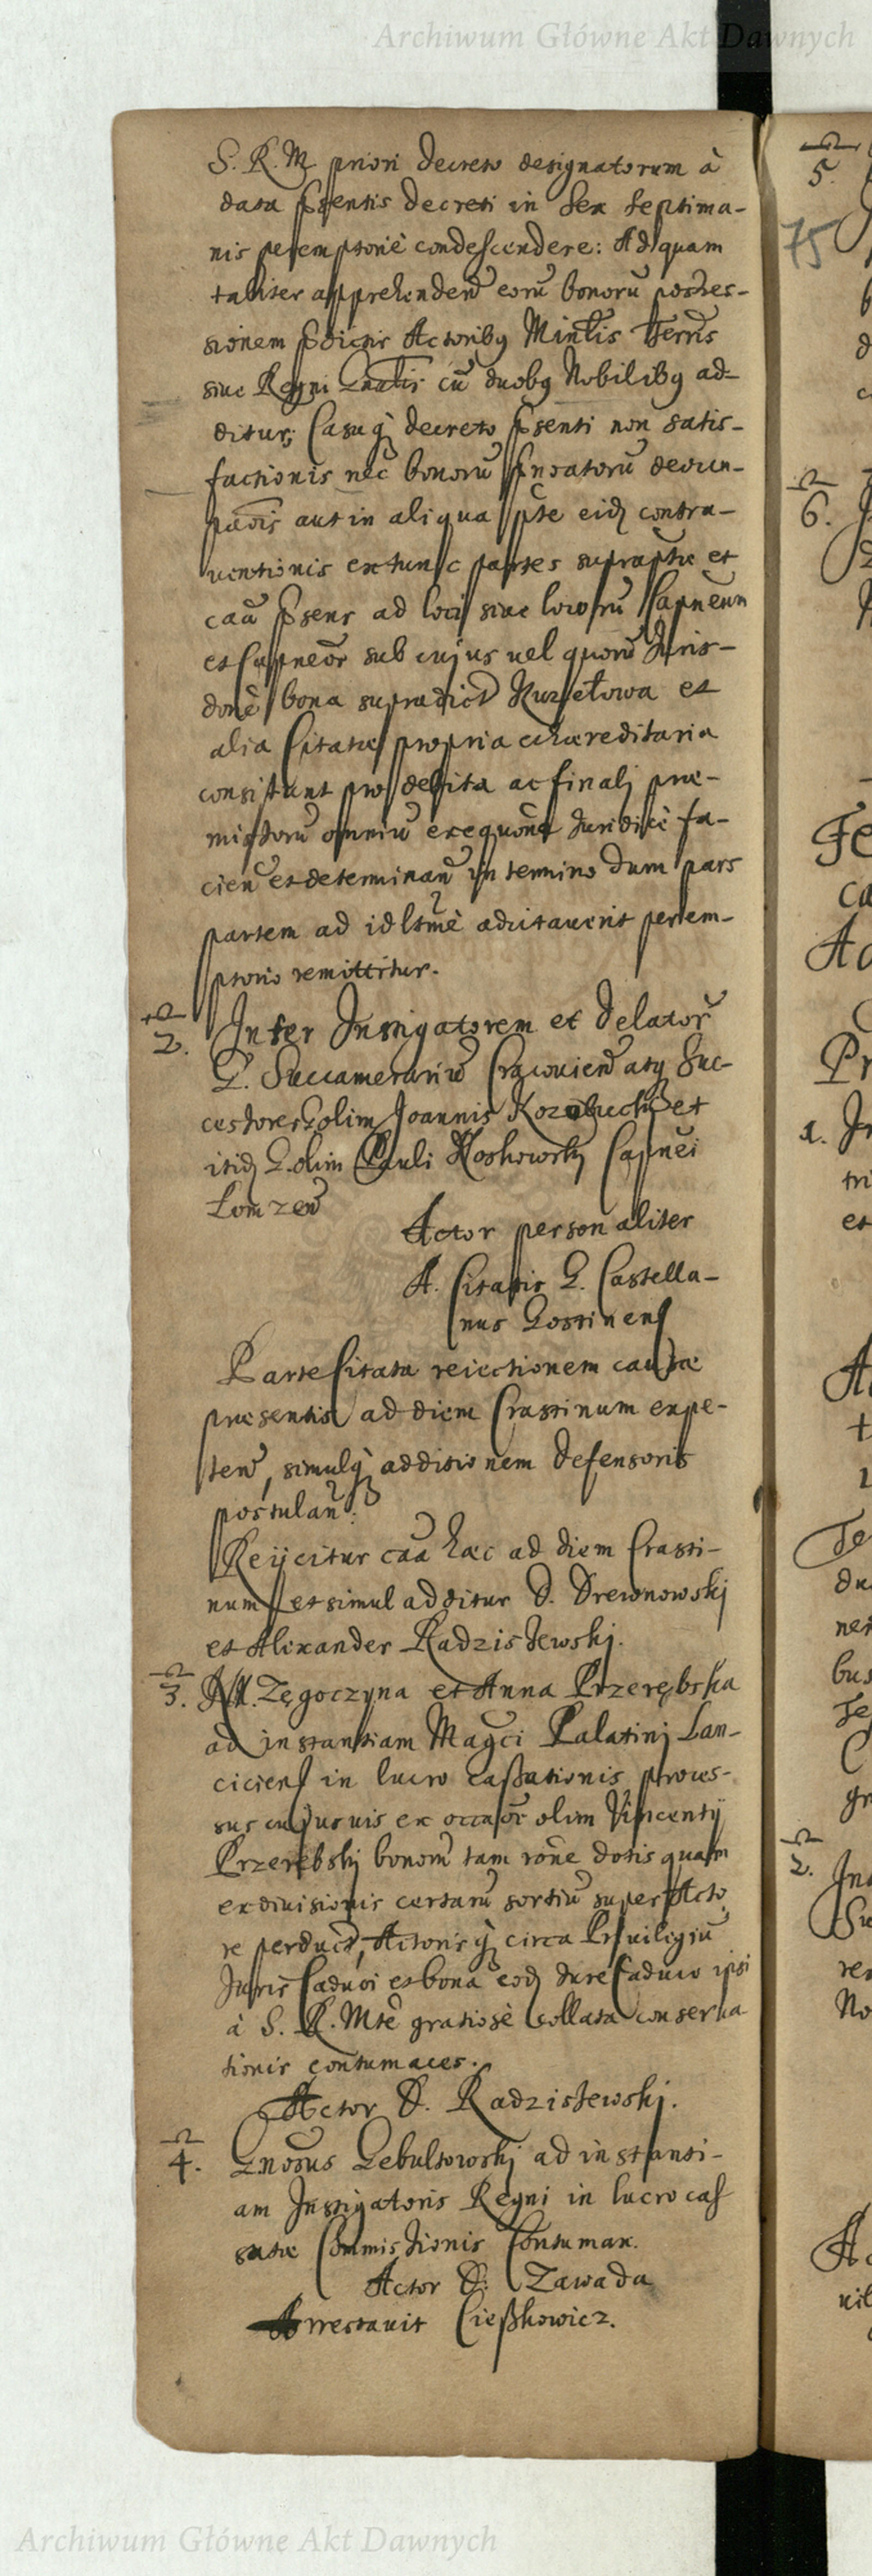 Archiwum Główne Akt Dawnych
S. R. M priori decreto designatorum à
data psentis decreti in sex septima-
nis peremptoriè condescendere: Ad quam
taliter apprehendend eorũ bonorũ posses-
sionem pdictis Actoribq Minlis Terris
siue Regni Gnalis cũ duobq Nobilibq ad-
ditur; Casu q decreto psenti non satis-
factionis nec bonorũ
aut in aliqua pte eidẽ contra-
uentionis extunc partes supraptæ et
caã psens ad loci siue locorũ Capneum
et Capneor sub cujus uel quorũ Juris-
donè bona supradict Kurzełowa et
alia Citatæ propria et hæreditaria
consistant pro debita ac finalj præ-
missorũ omniũ exequõne Juridicè fa-
cien et determinan in termino dum pars
partem ad id ltmè adcitauerit perem-
ptorio remittitur.
2. Inter Instigatorem et Delator
G. Succamerariũ Cracouien atq Suc-
cessores G. olim Joannis Kozubuchj et
itidẽ G. olim Pauli Koskowskj Capnei
Lomzen
Actor personaliter
A. Citatis G. Castella-
nus Gostinens
Parte Citata reiectionem causæ
præsentis ad diem Crastinum expe-
ten, simulq additionem defensoris
postulan:
Reijcitur caã hæc ad diem Crasti-
num et simul additur D. Drewnowskj
et Alexander Radziszewskj.
3. M. Zęgoczyna et Anna Przerębska
ad instantiam Magci Palatinj Lan-
ciciens in lucro cassationis proces-
sus cujusuis ex occaõe olim Vincentij
Przerębskj bonorũ tam rõne dotis quam
ex diuisionis certarũ sortiũ super Acto
re perduct, Actoris q circa Priuilegiũ
Juris Caduci et bona eodẽ Jure Caduco ipsi
à S. R. Mtè gratiosè collata conserua
tionis contumaces.
Actor D. Radziszewskj.
4. Gnosus Gebultowskj ad instanti-
am Instigatoris Regni in lucro cas
satæ Commissionis Contumax.
Actor D. Zawada
Arrestauit Cieszkowicz.
5.
75
6.
1.
2.
Archiwum Główne Akt Dawnych